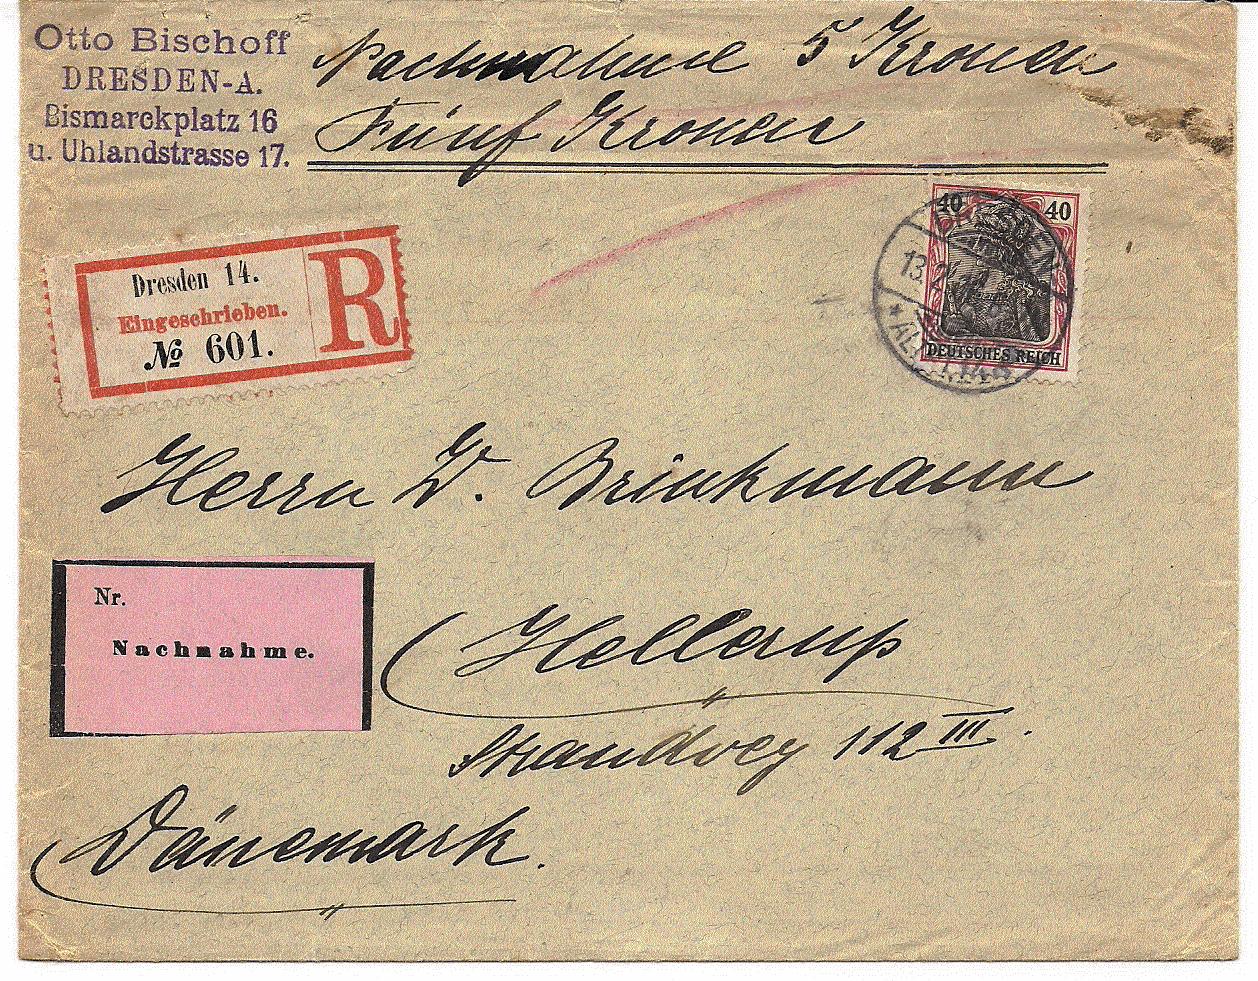 Otto Bischoff
DRESDEN-A.
Bismarckplatz 16
u. Uhlandstrasse 17.
Nachnahme 5 Kronen
Fünf Kronen
40 40
DEUTSCHES REICH
DRESDEN
13.2
Dresden 14.
Eingeschrieben.
№ 601.
R
Herrn W. Brinkmann
Nr.
Nachnahme.
Hellerup
Strandvej 112 III.
Dänemark.